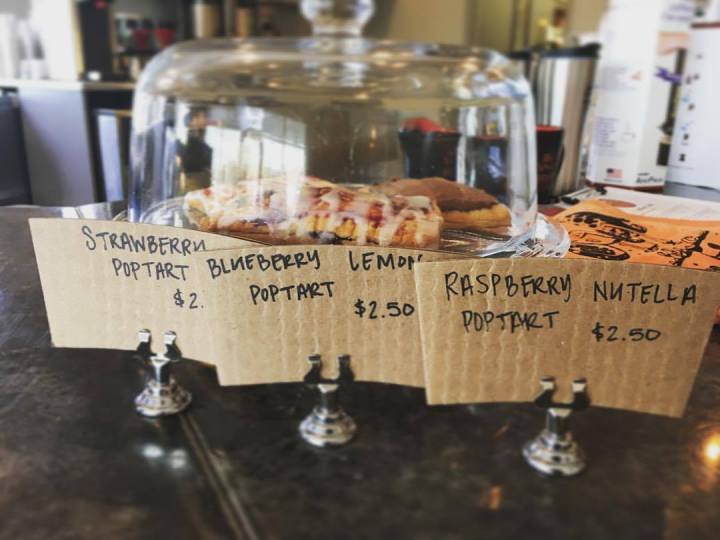 STRAWBERRY
POPTART
$2.
BLUEBERRY LEMON
POPTART
$2.50
RASPBERRY NUTELLA
POPTART
$2.50